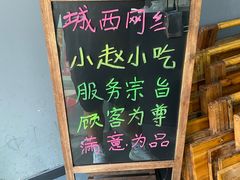 城西网红
小赵小吃
服务宗旨
顾客为尊
满意为品